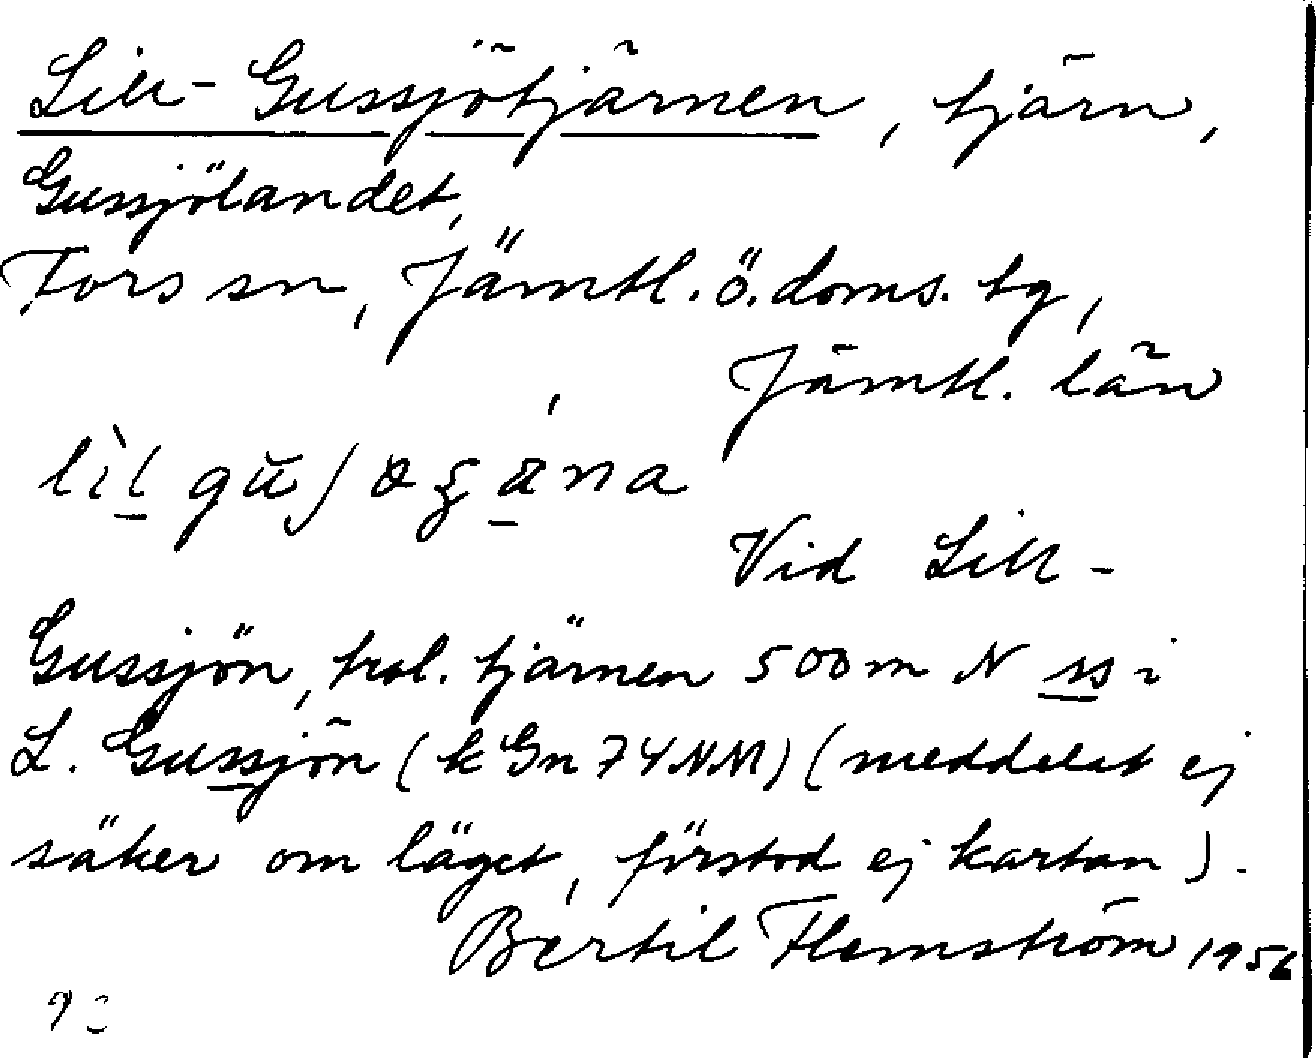 Lill-Gussjötjärnen, tjärn,
Gussjölandet,
Fors sn, Jämtl. ö. doms. tg,
Jämtl. län
Vid Lill-
Gussjön, trol. tjärnen 500 m N ss i
L. Gussjön (k Gn 74 NM) (meddelat ej
säker om läget, förstod ej kartan).
Bertil Flemström 1956